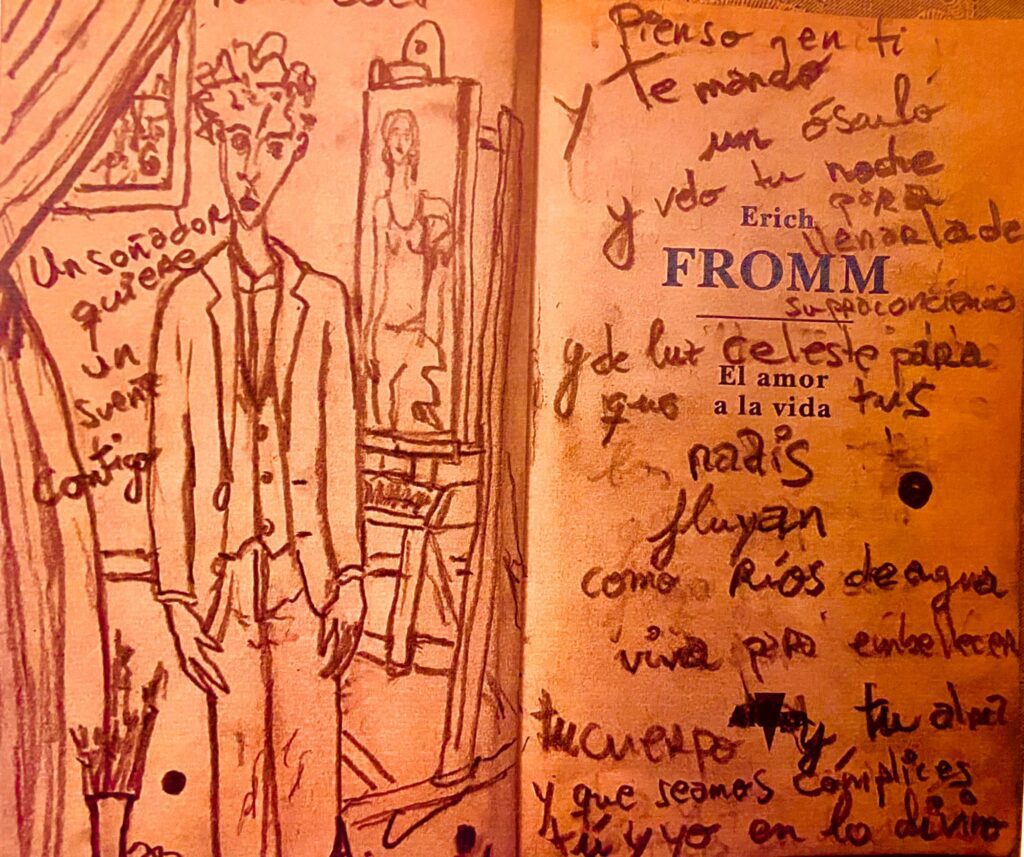 Un soñador
quiere
un
sueñe
contigo
Pienso en ti
y te mando
un ósculo
y vdo tu noche
para
Erich
llenarla de
FROMM
y de luz celeste para
El amor
que tus
a la vida
nadis
fluyan
como Ríos de agua
viva para embellecer
tu cuerpo y tu alma
y que seamos cómplices
tú y yo en lo divino